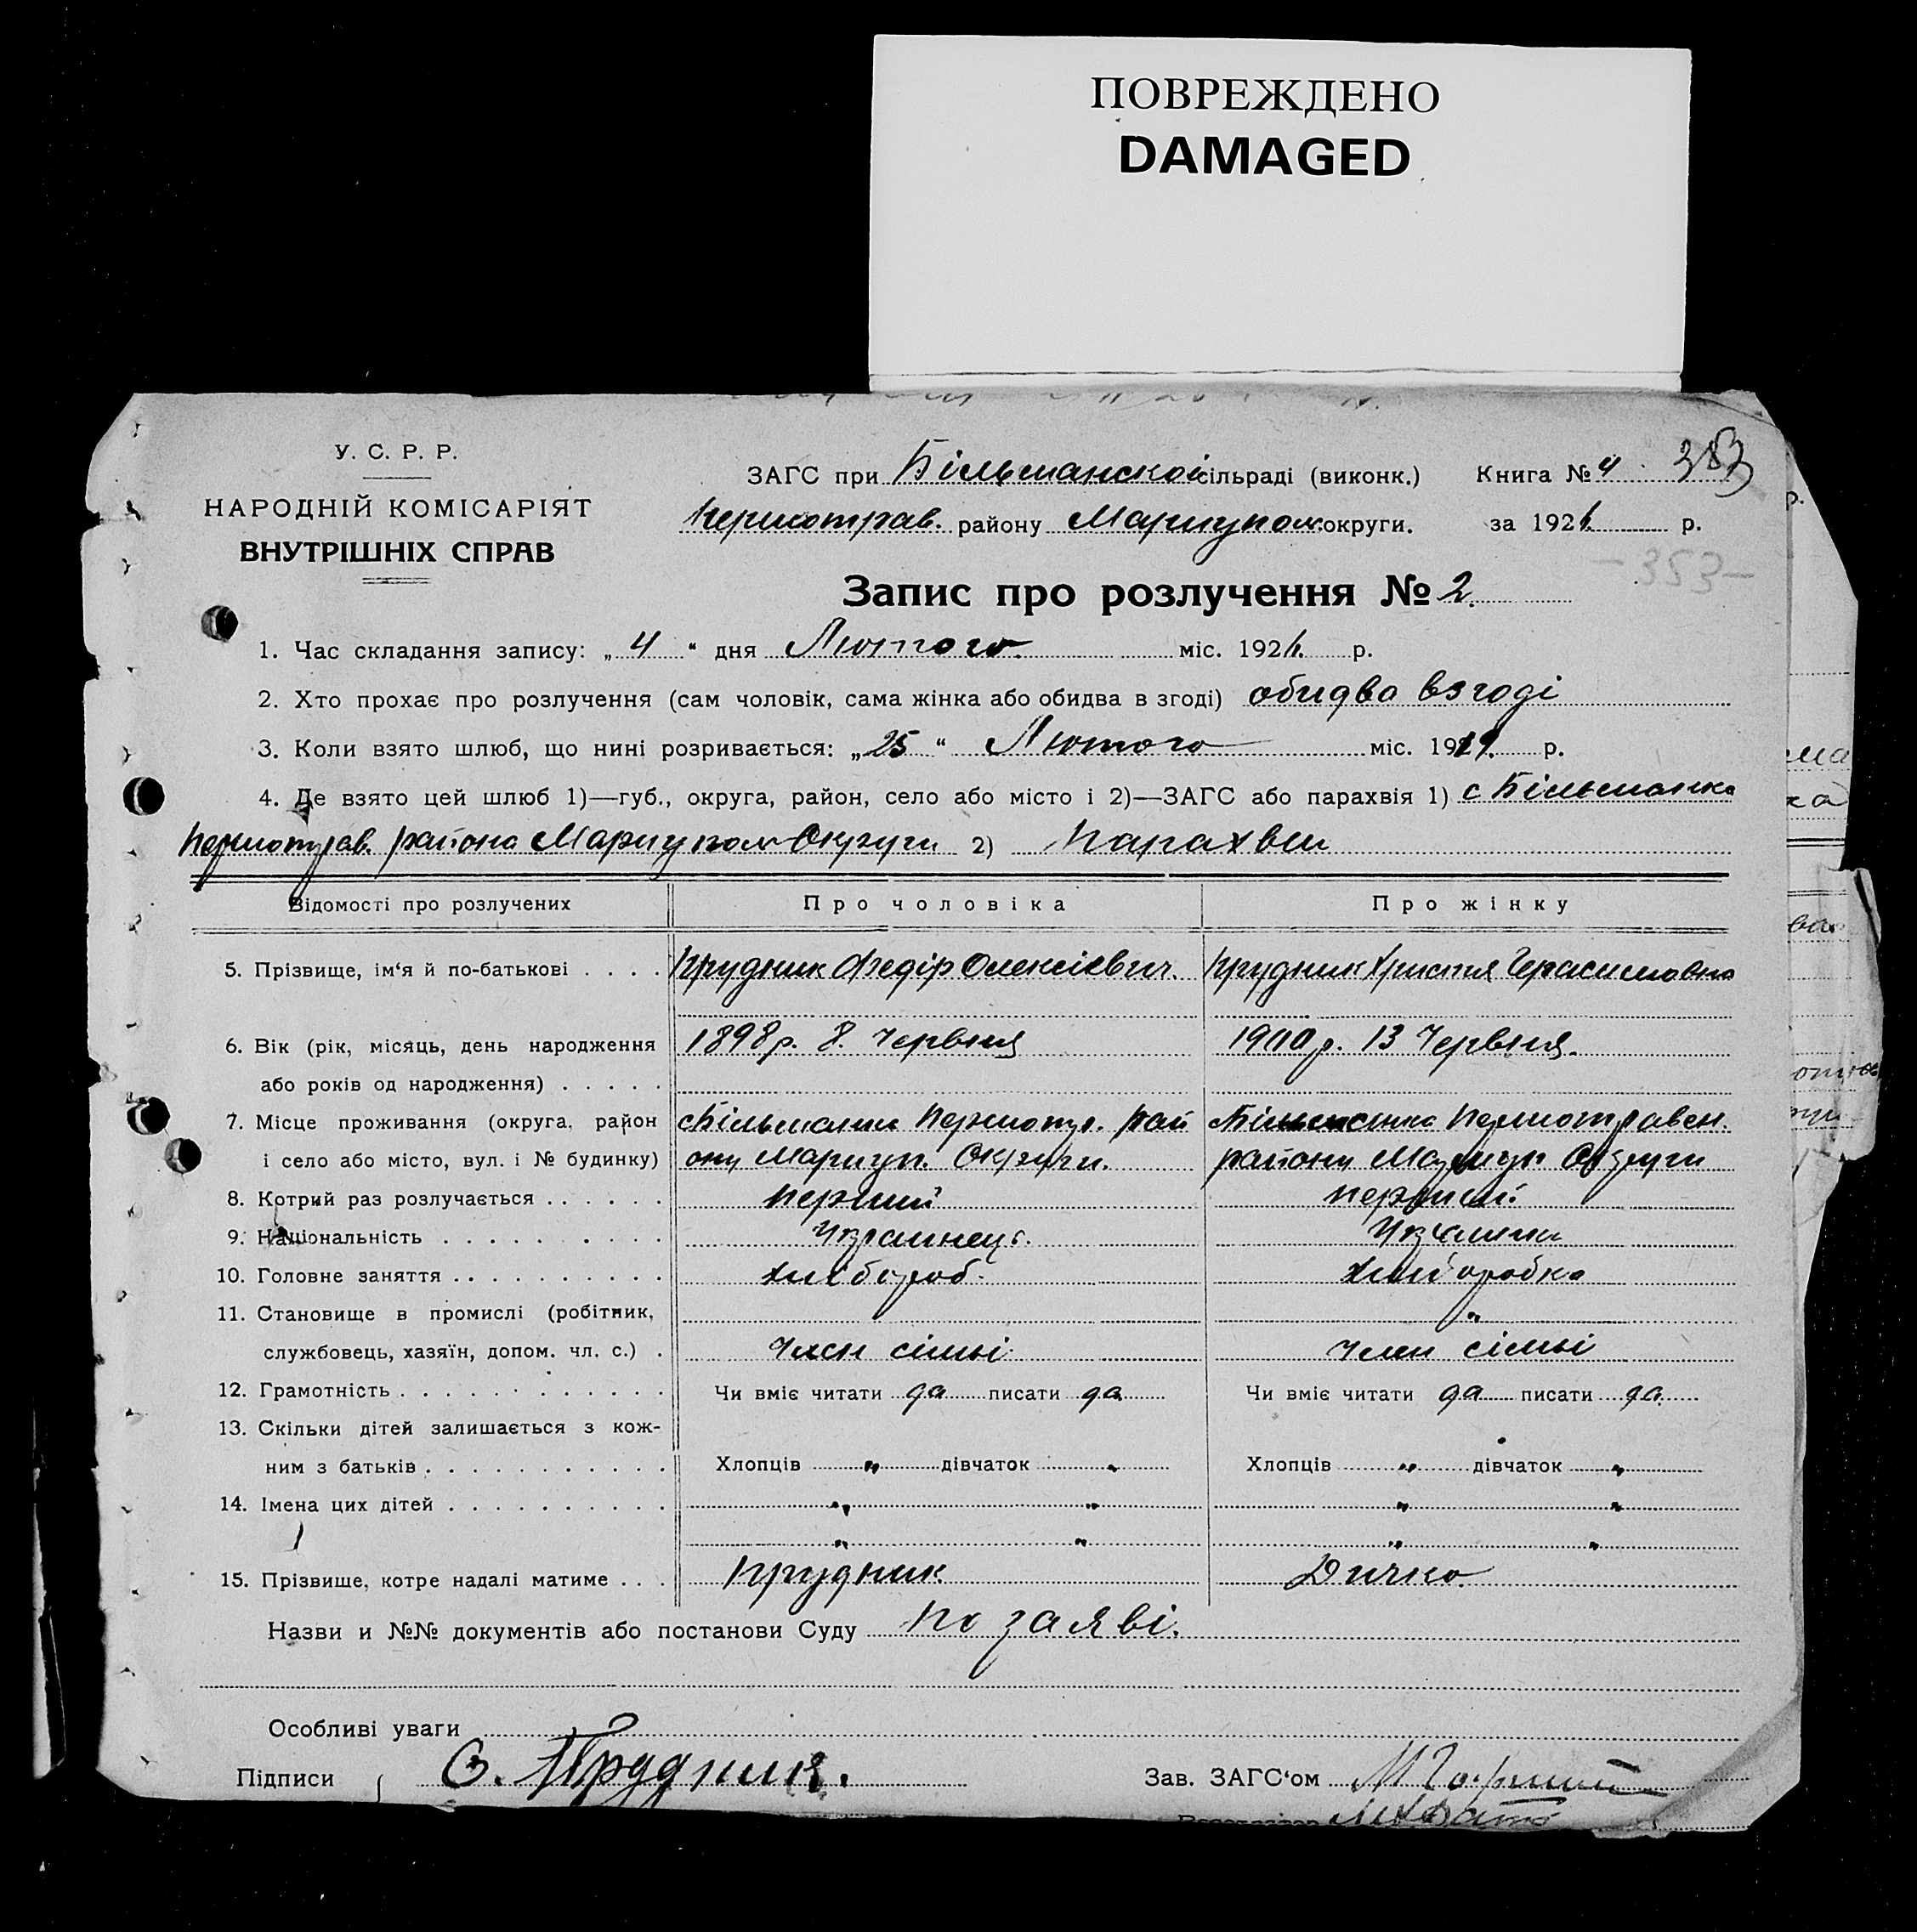 ПОВРЕЖДЕНО
DAMAGED
У. С. Р. Р.
НАРОДНІЙ КОМІСАРІЯТ
ВНУТРІШНІХ СПРАВ
ЗАГС при Більманской сільраді (виконк.) Книга № 4 353
Першотрав. району Маріупол. округи. за 1926 р.
-353-
Запис про розлучення № 2.
1. Час складання запису: „ 4 “ дня Лютого міс. 1926. р.
2. Хто прохає про розлучення (сам чоловік, сама жінка або обидва в згоді) обидва взгоді
3. Коли взято шлюб, що нині розривається: „ 25 “ Лютого міс. 1919. р.
4. Де взято цей шлюб 1)—губ., округа, район, село або місто і 2)—ЗАГС або парахвія 1) с Більманка
Першотрав. района Мариупол Округи 2) Парахвии
Відомості про розлучених Про чоловіка Про жінку
5. Прізвище, ім‘я й по-батькові . . . . Прудник Федір Олексієвич Прудник Христя Герасимовна
6. Вік (рік, місяць, день народження 1898 р. 8. Червня 1900 р. 13 Червня.
або років од народження) . . . . .
7. Місце проживання (округа, район с Більманка Першотр. рай Більманка Першотравен.
і село або місто, вул. і № будинку) ону Мариуп. Округи. району Мариуп Округи
8. Котрий раз розлучається . . . . . . перший перший
9. Національність . . . . . . . . . Українець. Українка
10. Головне заняття . . . . . . . . . . хлібороб. хліборобка
11. Становище в промислі (робітник, "
службовець, хазяїн, допом. чл. с.) . Член сімьї Член сімьї
12. Грамотність . . . . . . . . . . . . . Чи вміє читати да писати да Чи вміє читати да писати да
13. Скільки дітей залишається з кож-
ним з батьків . . . . . . . . . . . Хлопців " дівчаток " Хлопців " дівчаток "
14. Імена цих дітей . . . . . . . . . . " " " "
" " " "
15. Прізвище, котре надалі матиме . . . Прудник Дичко.
Назви и №№ документів або постанови Суду По заяві.
Особливі уваги
Підписи Прудник.
Зав. ЗАГС‘ом